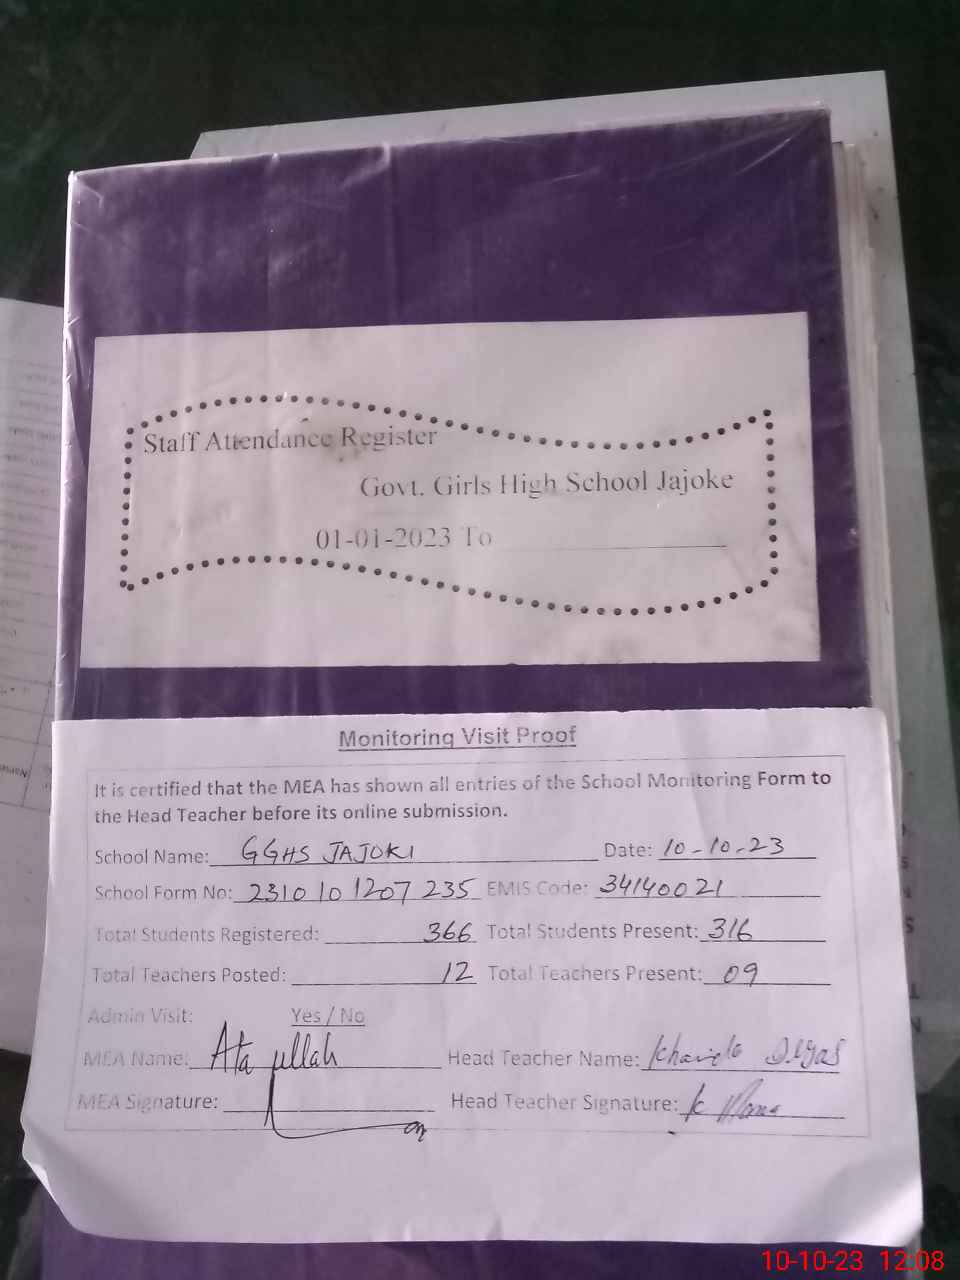 Staff Attendance Register
Govt. Girls High School Jajoke
01-01-2023 To
Monitoring Visit Proof
It is certified that the MEA has shown all entries of the School Monitoring Form to
the Head Teacher before its online submission.
School Name: GGHS JAJOKI Date: 10-10-23
School Form No: 2310101207235 EMIS Code: 34140021
Total Students Registered: 366 Total Students Present: 316
Total Teachers Posted: 12 Total Teachers Present: 09
Admin Visit: Yes / No
MEA Name: Ata ullah Head Teacher Name:
MEA Signature: Head Teacher Signature:
10-10-23 12:08